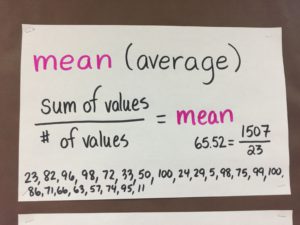 mean (average)
sum of values
# of values
= mean
65.52 = 1507
23
23, 82, 96, 98, 72, 33, 50, 100, 24, 29, 5, 98, 75, 99, 100,
86, 71, 66, 63, 57, 74, 95, 11